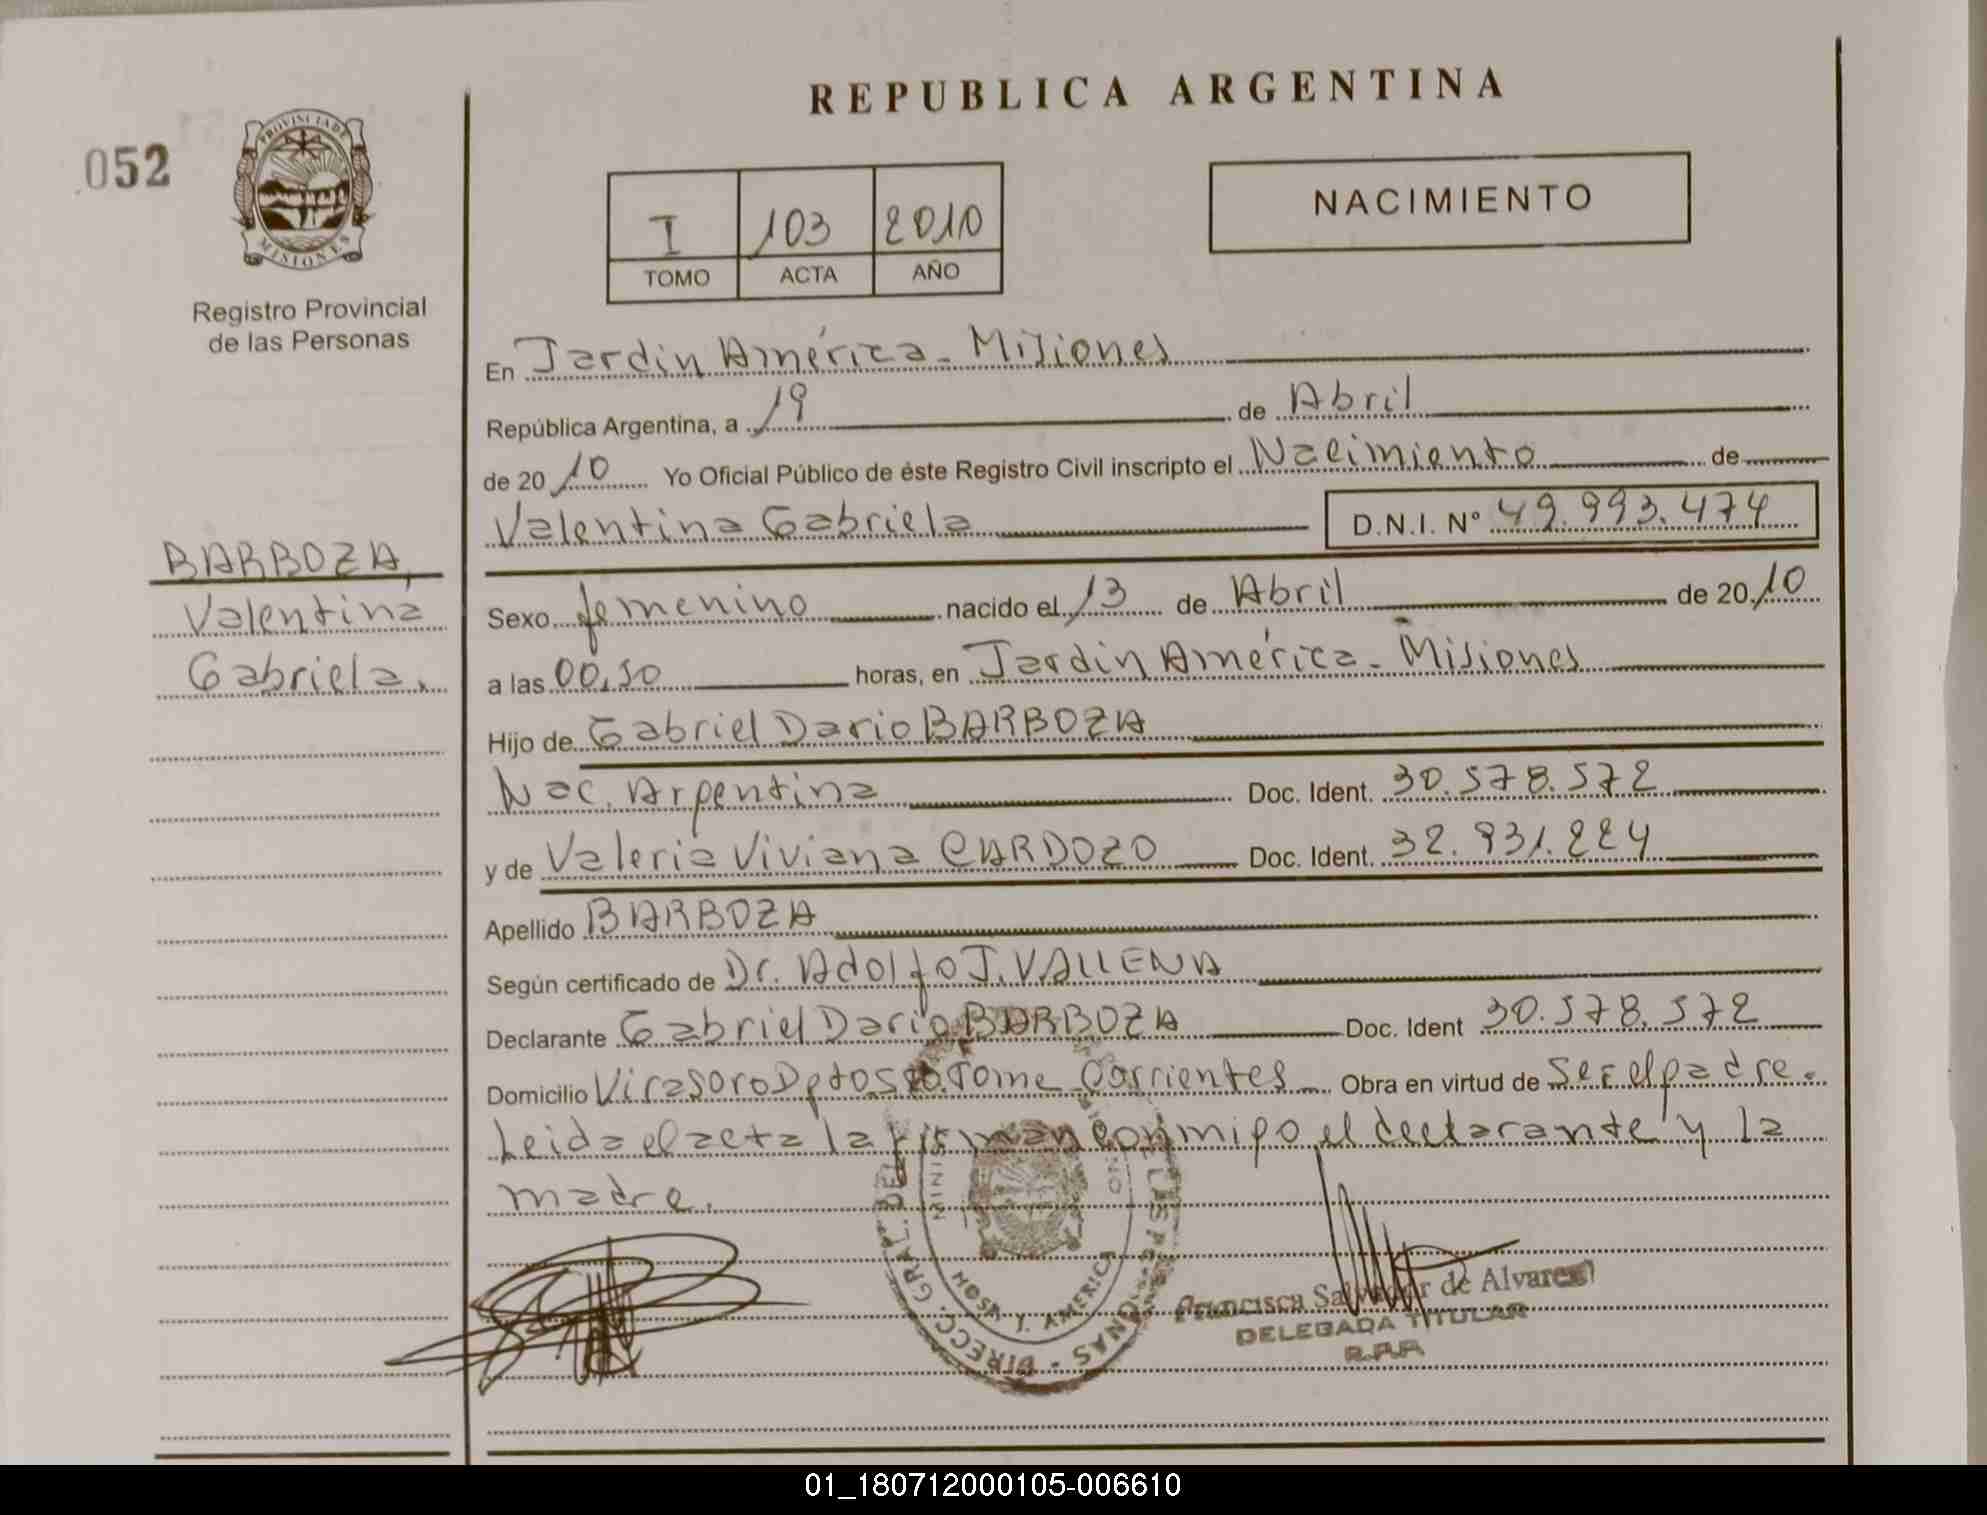 REPUBLICA ARGENTINA
052
PROVINCIA DE
MISIONES
Registro Provincial
de las Personas
I 103 2010
TOMO ACTA AÑO
NACIMIENTO
En Jardin América - Misiones
República Argentina, a 19 de Abril
de 2010 Yo Oficial Público de éste Registro Civil inscripto el Nacimiento de
Valentina Gabriela D.N.I. Nº 49.993.474
BARBOZA,
Valentina
Gabriela.
Sexo femenino nacido el 13 de Abril de 2010
a las horas, en Jardin América - Misiones
Hijo de Gabriel Dario BARBOZA
Nac. Argentina Doc. Ident. 30.578.572
y de Valeria Viviana CARDOZO Doc. Ident. 32.931.224
Apellido BARBOZA
Según certificado de Dr. Adolfo J. VALLENA
Declarante Gabriel Dario BARBOZA Doc. Ident 30.578.572
Domicilio Virasoro Dpto Sto. Tome Corrientes Obra en virtud de Ser el padre.
Leida el acta la firman conmigo el declarante y la
madre.
DIRECC. GRAL. DEL
AMERICA
Francisca Salvador de Alvarez
DELEGADA TITULAR
R.P.P.
01_180712000105-006610